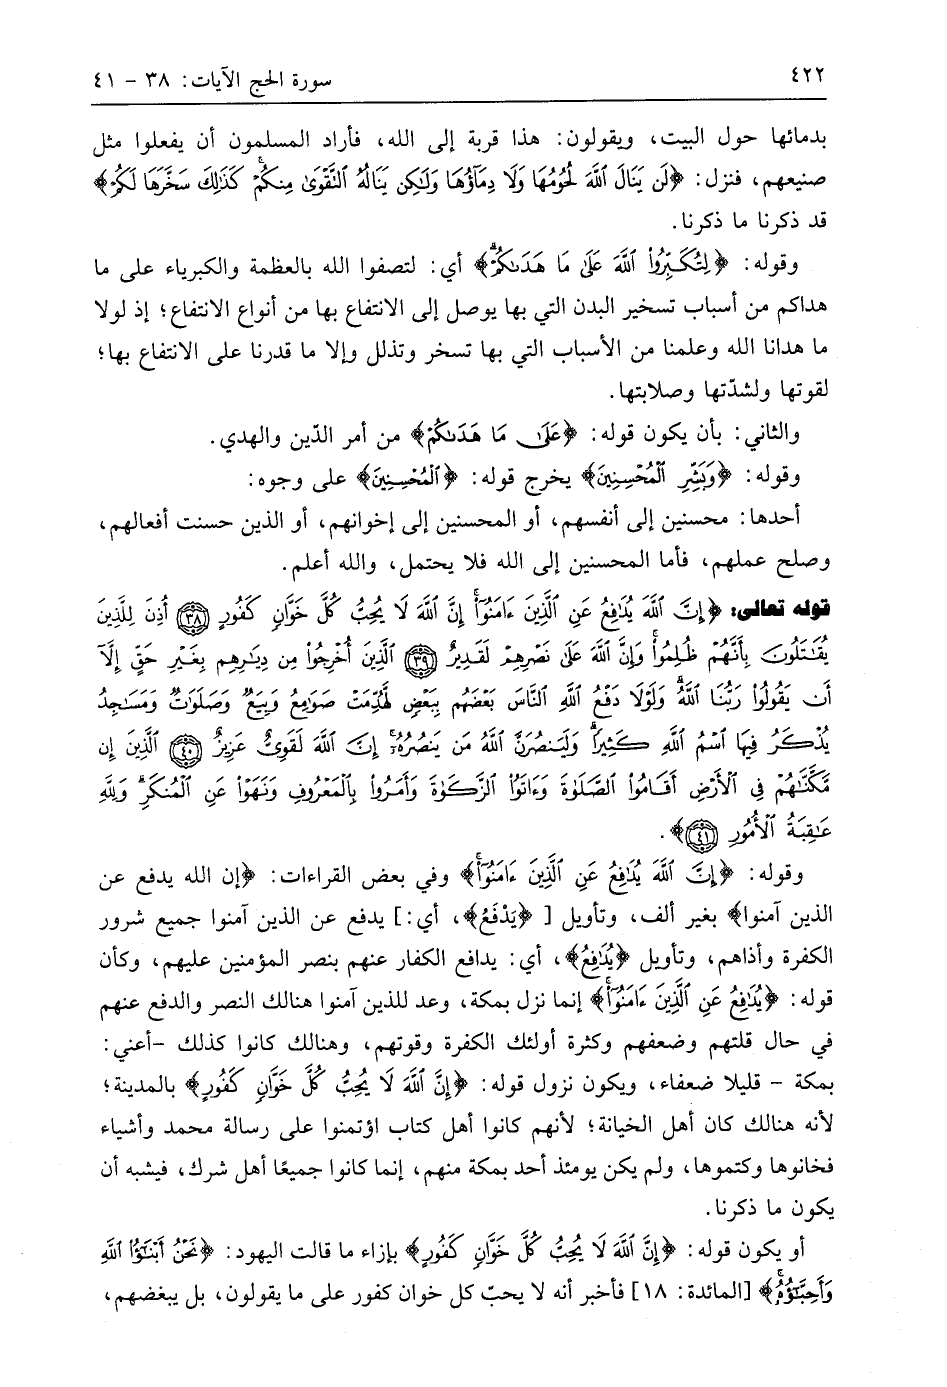 ٤٢٢
سورة الحج الآيات: ٣٨ - ٤١
بدمائها حول البيت، ويقولون: هذا قربة إلى الله، فأراد المسلمون أن يفعلوا مثل
صنيعهم، فنزل: ﴿لَن يَنَالَ ٱللَّهَ لُحُومُهَا وَلَا دِمَآؤُهَا وَلَٰكِن يَنَالُهُ ٱلتَّقْوَىٰ مِنكُمْۚ كَذَٰلِكَ سَخَّرَهَا لَكُمْ﴾
قد ذكرنا ما ذكرنا.
وقوله: ﴿لِتُكَبِّرُوا۟ ٱللَّهَ عَلَىٰ مَا هَدَىٰكُمْۗ﴾ أي: لتصفوا الله بالعظمة والكبرياء على ما
هداكم من أسباب تسخير البدن التي بها يوصل إلى الانتفاع بها من أنواع الانتفاع؛ إذ لولا
ما هدانا الله وعلمنا من الأسباب التي بها تسخر وتذلل وإلا ما قدرنا على الانتفاع بها؛
لقوتها ولشدّتها وصلابتها.
والثاني: بأن يكون قوله: ﴿عَلَىٰ مَا هَدَىٰكُمْ﴾ من أمر الدّين والهدي.
وقوله: ﴿وَبَشِّرِ ٱلْمُحْسِنِينَ﴾ يخرج قوله: ﴿ٱلْمُحْسِنِينَ﴾ على وجوه:
أحدها: محسنين إلى أنفسهم، أو المحسنين إلى إخوانهم، أو الذين حسنت أفعالهم،
وصلح عملهم، فأما المحسنين إلى الله فلا يحتمل، والله أعلم.
قوله تعالى: ﴿إِنَّ ٱللَّهَ يُدَٰفِعُ عَنِ ٱلَّذِينَ ءَامَنُوٓا۟ۗ إِنَّ ٱللَّهَ لَا يُحِبُّ كُلَّ خَوَّانٍ كَفُورٍ ٣٨ أُذِنَ لِلَّذِينَ
يُقَٰتَلُونَ بِأَنَّهُمْ ظُلِمُوا۟ۚ وَإِنَّ ٱللَّهَ عَلَىٰ نَصْرِهِمْ لَقَدِيرٌ ٣٩ ٱلَّذِينَ أُخْرِجُوا۟ مِن دِيَٰرِهِم بِغَيْرِ حَقٍّ إِلَّآ
أَن يَقُولُوا۟ رَبُّنَا ٱللَّهُۗ وَلَوْلَا دَفْعُ ٱللَّهِ ٱلنَّاسَ بَعْضَهُم بِبَعْضٍ لَّهُدِّمَتْ صَوَٰمِعُ وَبِيَعٌ وَصَلَوَٰتٌ وَمَسَٰجِدُ
يُذْكَرُ فِيهَا ٱسْمُ ٱللَّهِ كَثِيرًاۗ وَلَيَنصُرَنَّ ٱللَّهُ مَن يَنصُرُهُۥٓۚ إِنَّ ٱللَّهَ لَقَوِىٌّ عَزِيزٌ ٤٠ ٱلَّذِينَ إِن
مَّكَّنَّٰهُمْ فِى ٱلْأَرْضِ أَقَامُوا۟ ٱلصَّلَوٰةَ وَءَاتَوُا۟ ٱلزَّكَوٰةَ وَأَمَرُوا۟ بِٱلْمَعْرُوفِ وَنَهَوْا۟ عَنِ ٱلْمُنكَرِۗ وَلِلَّهِ
عَٰقِبَةُ ٱلْأُمُورِ ٤١﴾.
وقوله: ﴿إِنَّ ٱللَّهَ يُدَٰفِعُ عَنِ ٱلَّذِينَ ءَامَنُوٓا۟ۗ﴾ وفي بعض القراءات: ﴿إن الله يدفع عن
الذين آمنوا﴾ بغير ألف، وتأويل [ ﴿يَدْفَعُ﴾، أي:] يدفع عن الذين آمنوا جميع شرور
الكفرة وأذاهم، وتأويل ﴿يُدَٰفِعُ﴾، أي: يدافع الكفار عنهم بنصر المؤمنين عليهم، وكأن
قوله: ﴿يُدَٰفِعُ عَنِ ٱلَّذِينَ ءَامَنُوٓا۟ۗ﴾ إنما نزل بمكة، وعد للذين آمنوا هنالك النصر والدفع عنهم
في حال قلتهم وضعفهم وكثرة أولئك الكفرة وقوتهم، وهنالك كانوا كذلك -أعني:
بمكة - قليلا ضعفاء، ويكون نزول قوله: ﴿إِنَّ ٱللَّهَ لَا يُحِبُّ كُلَّ خَوَّانٍ كَفُورٍ﴾ بالمدينة؛
لأنه هنالك كان أهل الخيانة؛ لأنهم كانوا أهل كتاب اؤتمنوا على رسالة محمد وأشياء
فخانوها وكتموها، ولم يكن يومئذ أحد بمكة منهم، إنما كانوا جميعًا أهل شرك، فيشبه أن
يكون ما ذكرنا.
أو يكون قوله: ﴿إِنَّ ٱللَّهَ لَا يُحِبُّ كُلَّ خَوَّانٍ كَفُورٍ﴾ بإزاء ما قالت اليهود: ﴿نَحْنُ أَبْنَٰٓؤُا۟ ٱللَّهِ
وَأَحِبَّٰٓؤُهُۥۚ﴾ [المائدة: ١٨] فأخبر أنه لا يحبّ كل خوان كفور على ما يقولون، بل يبغضهم،